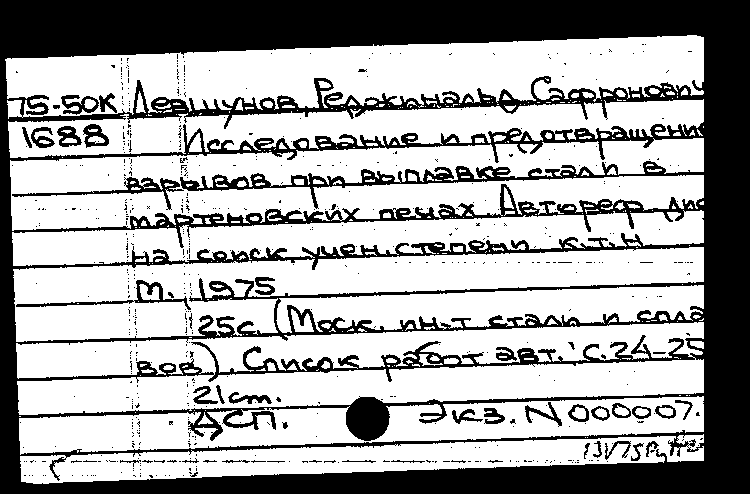 75-50К Левшунов, Редокинальд Сафронович
1688 Исследование и предотвращение
взрывов при выплавке стали в
мартеновских печах. Автореф. дис
на соиск. учен. степени к.т.н
М., 1975.
25с. (Моск. ин-т стали и спла
вов). Список работ авт.: с.24-25
21 см.
ДСП. Экз. N 000007.